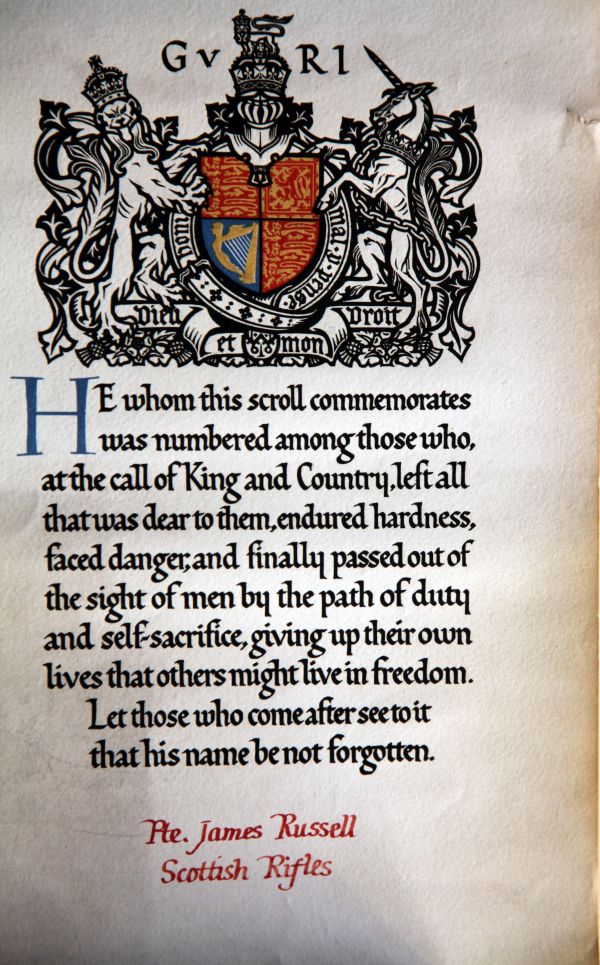 G V RI
honi
mal y pense
Dieu et mon Droit
HE whom this scroll commemorates
was numbered among those who,
at the call of King and Country, left all
that was dear to them, endured hardness,
faced danger, and finally passed out of
the sight of men by the path of duty
and self-sacrifice, giving up their own
lives that others might live in freedom.
Let those who come after see to it
that his name be not forgotten.
Pte. James Russell
Scottish Rifles